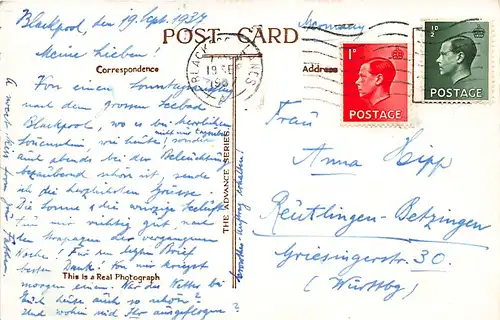 Blackpool, den 19. Sept. 1937
Germany
POST CARD
Meine Lieben!
Correspondence
Address
BLACKPOOL
1D
POSTAGE
1/2 D
POSTAGE
Von einem Sonntagsausflug
nach dem grossen Seebad
Blackpool, wo es bei herrlichem
nicht nur tagsüber
Sonnenschein, wie heute! sondern
auch abends bei der Beleuchtung
bezaubernd schön ist, sende
ich die herzlichsten Grüsse.
Die Sonne & die würzige Seeluft
für mich richtig gut nach
den Strapazen der vergangenen
Woche! Für den letzten Brief
besten Dank! Von mir kriegst
morgen einen. War das Wetter bei
Euch heute auch so schön?
Und wohin seid Ihr ausgeflogen?
This is a Real Photograph
THE ADVANCE SERIES
Frau
Anna Hipp
Reutlingen-Betzingen
Griesingerstr. 30.
(Württbg)